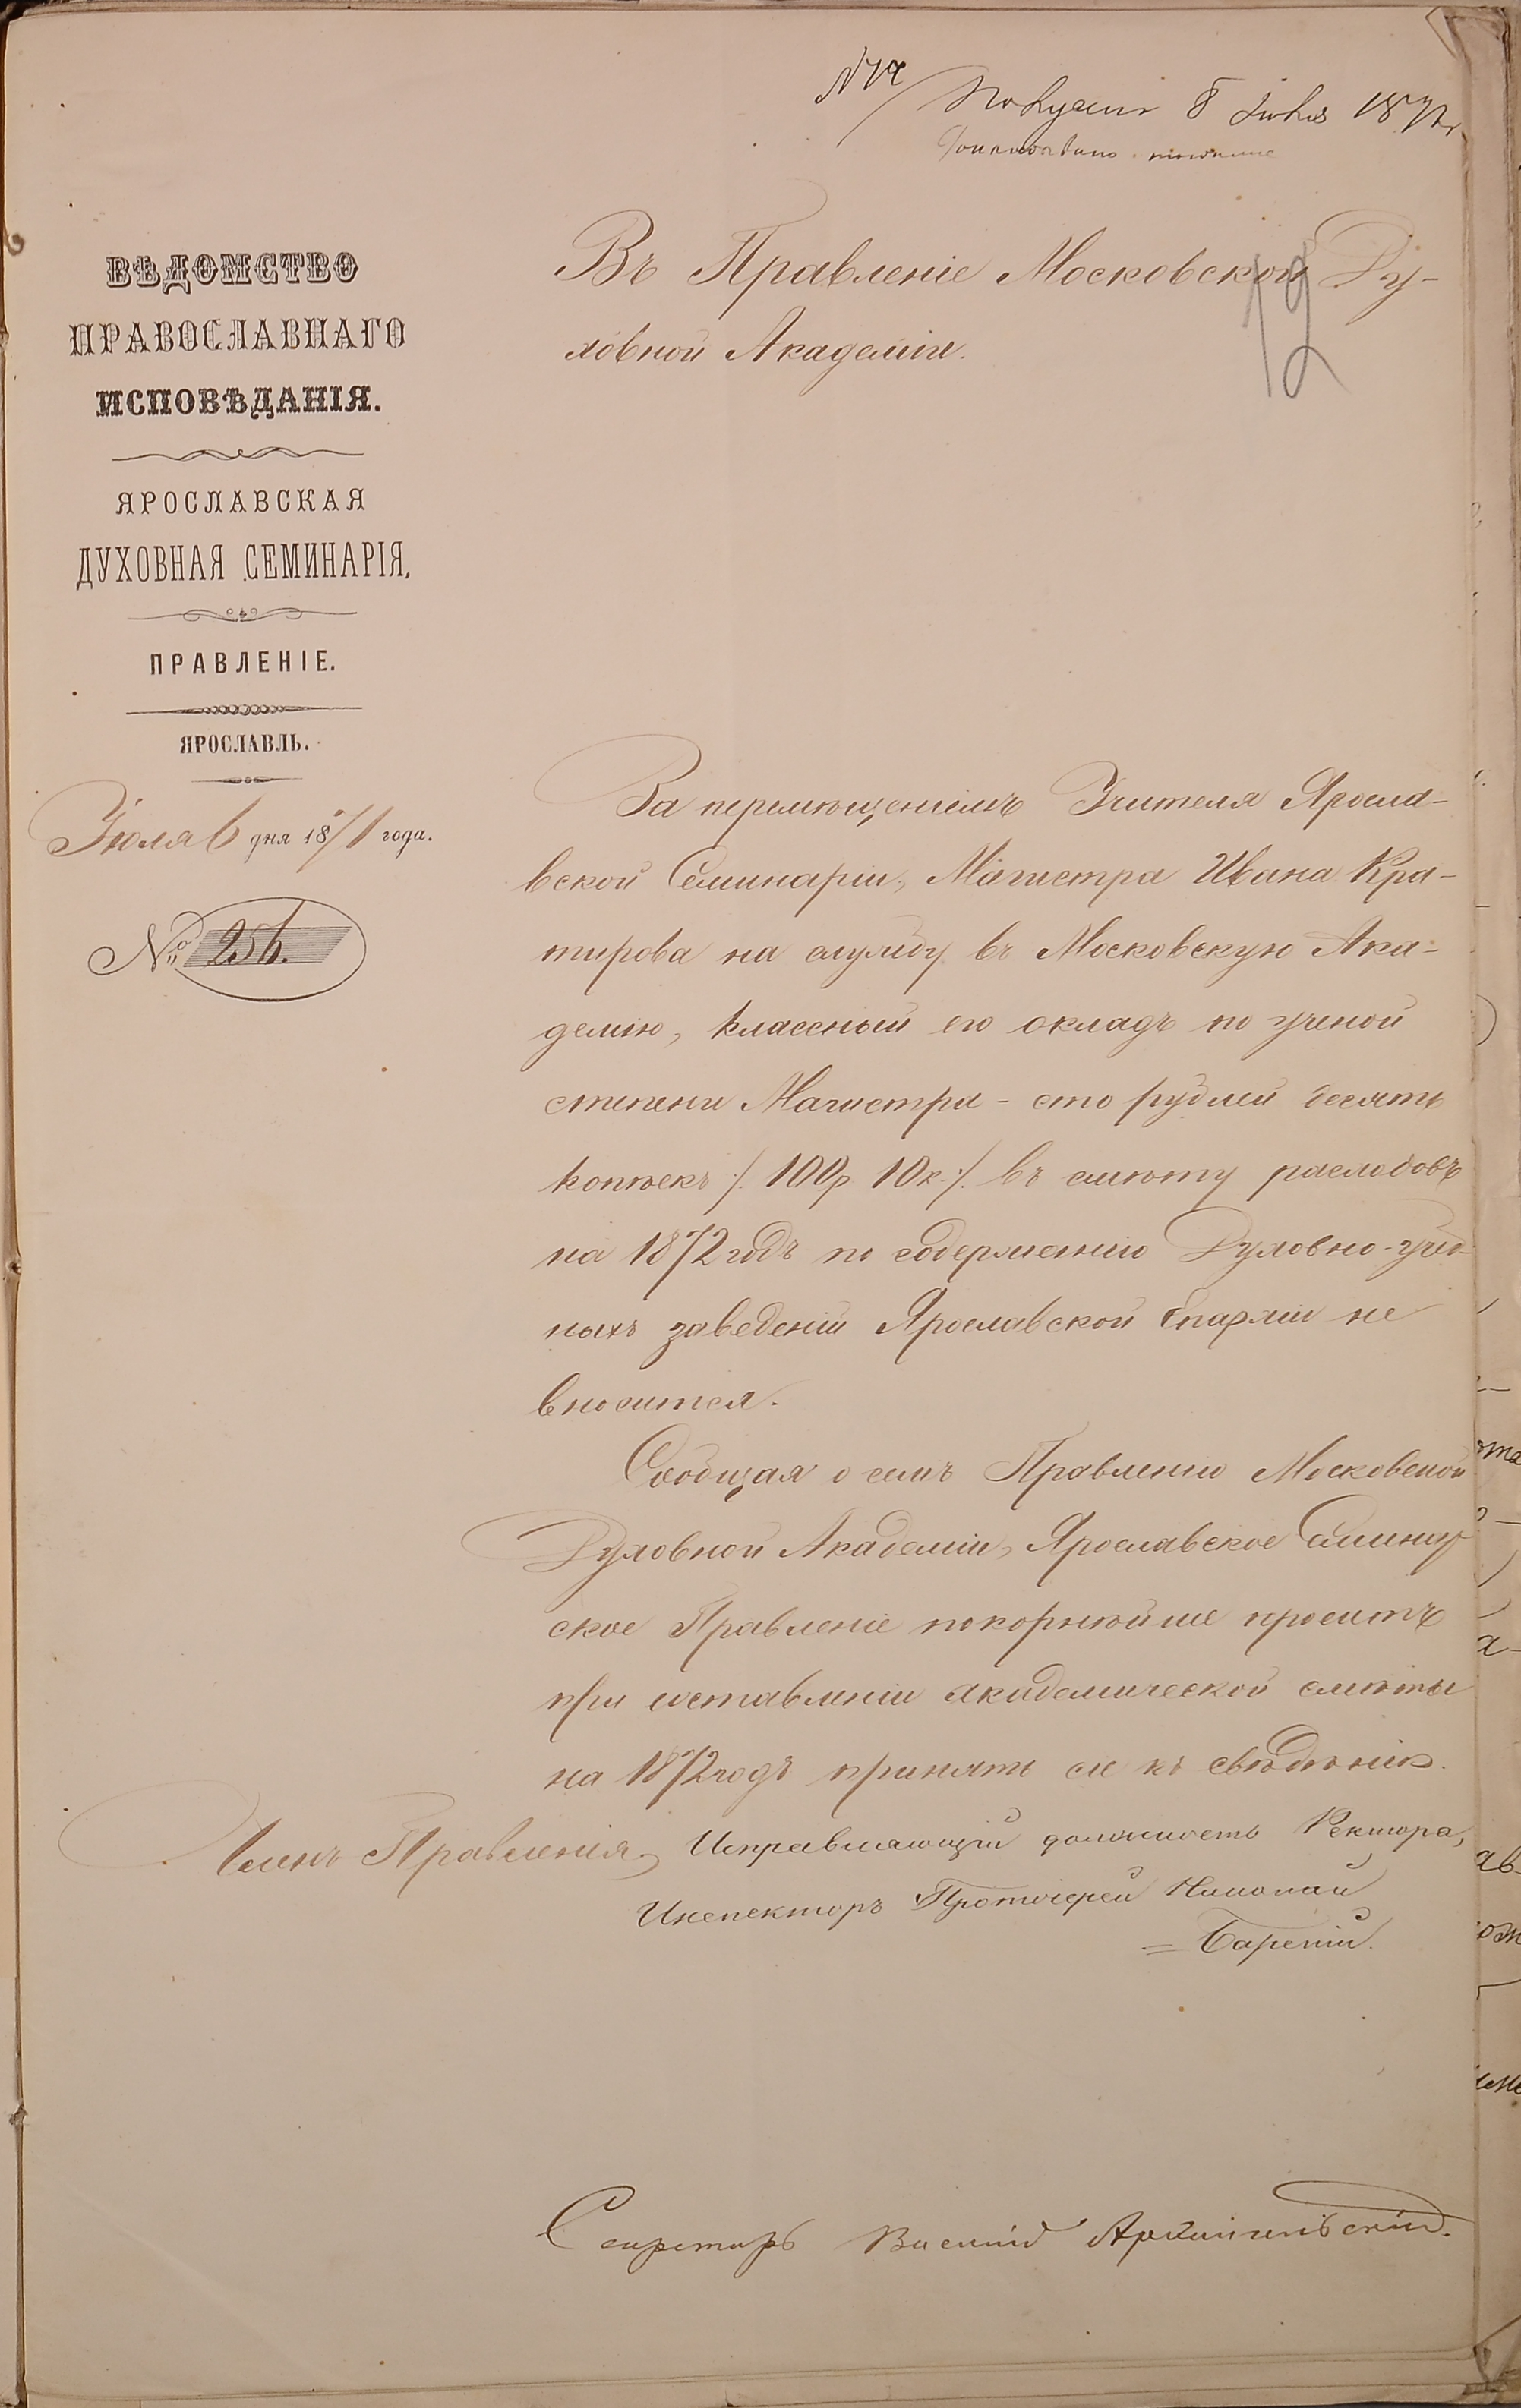 Получено 8 Июля 1871 г.
ВѢДОМСТВО
ПРАВОСЛАВНАГО
ИСПОВѢДАНІЯ.
ЯРОСЛАВСКАЯ
ДУХОВНАЯ СЕМИНАРІЯ,
ПРАВЛЕНІЕ.
ЯРОСЛАВЛЬ.
Іюля 6 дня 1871 года.
№ 256.
Въ Правленіе Московской Ду-
ховной Академіи.
19
За перемѣщеніемъ Учителя Яросла-
вской Семинаріи, Магистра Ивана Кра-
тирова на службу въ Московскую Ака-
демію, классный его окладъ по ученой
степени Магистра - сто рублей десять
копѣекъ /. 100р 10к. /. въ смѣту расходовъ
на 1872 годъ по содержанію Духовно-учеб-
ныхъ заведеній Ярославской Епархіи не
вносится.
Сообщая о семъ Правленію Московской
Духовной Академіи, Ярославское Семинар-
ское Правленіе покорнѣйше проситъ
при составленіи академической смѣты
на 1872 годъ принять сіе къ свѣдѣнію.
Членъ Правленія, Исправляющій должность Ректора,
Инспекторъ Протоіерей Николай
= Барскій.
Секретарь Василій Архангельскій.